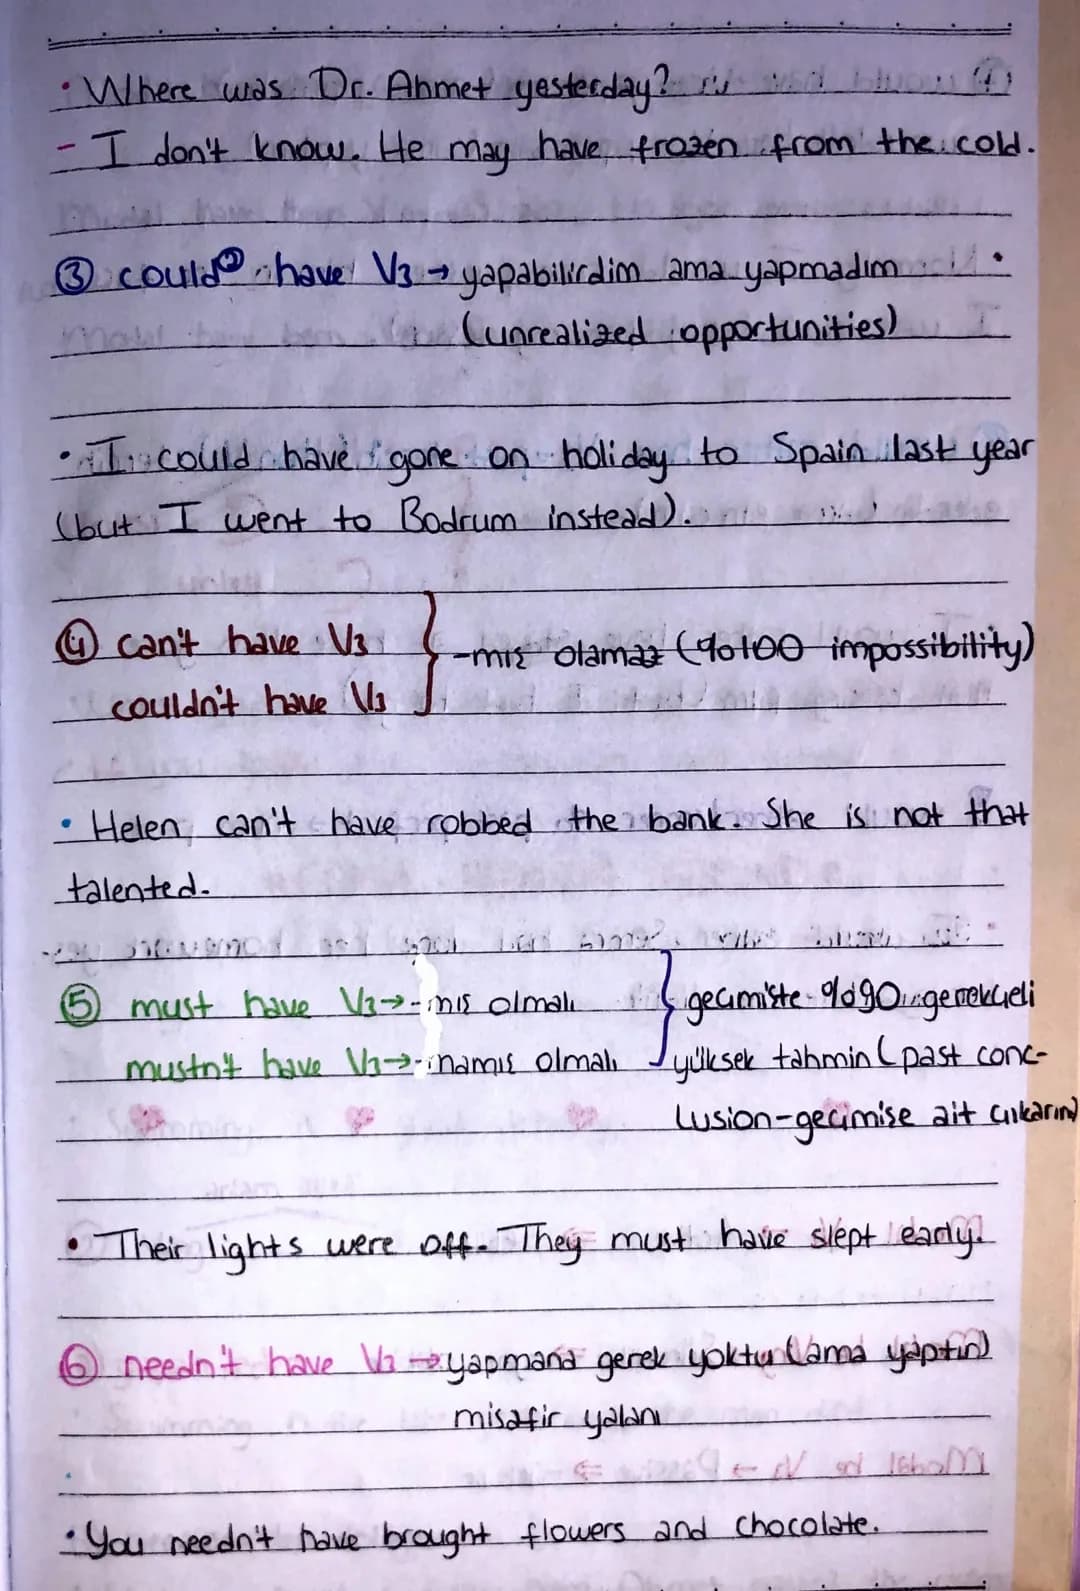 • Where was Dr. Ahmet yesterday?
- I don't know. He may have frozen from the cold.
③ could② have V3 → yapabilirdim ama yapmadım
(unrealized opportunities)
• I could have gone on holiday to Spain last year
(but I went to Bodrum instead).
④ can't have V3 } -mış olamaz (%100 impossibility)
couldn't have V3
• Helen can't have robbed the bank. She is not that
talented.
⑤ must have V3 → -mış olmalı } geçmişte %90 gerekçeli
mustn't have V3 → -mamış olmalı yüksek tahmin (past conc-
lusion-geçmişe ait çıkarım)
• Their lights were off. They must have slept early.
⑥ needn't have V3 → yapmana gerek yoktu (ama yaptın)
misafir yalanı
• You needn't have brought flowers and chocolate.